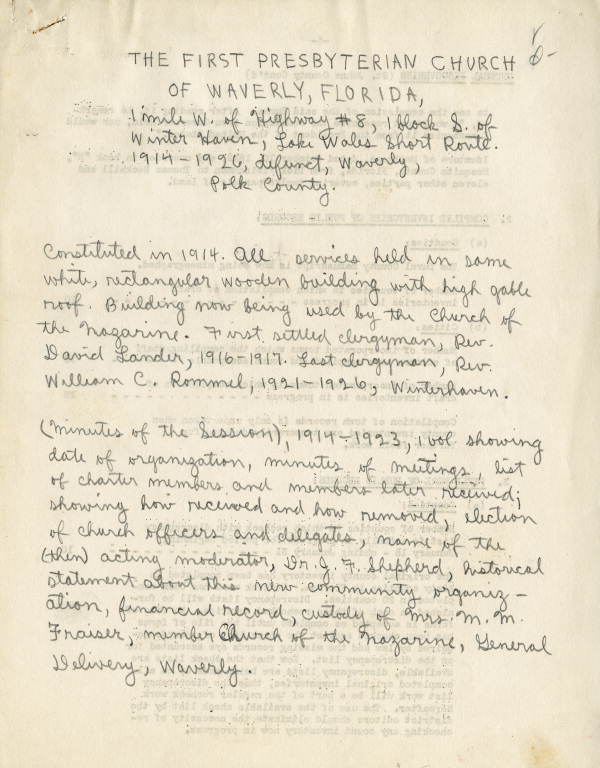 THE FIRST PRESBYTERIAN CHURCH
OF WAVERLY, FLORIDA,
1 mile W. of Highway #8, 1 block S. of
Winter Haven, Lake Wales Short Route.
1914-1926, defunct, Waverly,
Polk County.
Constituted in 1914. All services held in same
white, rectangular wooden building with high gable
roof. Building now being used by the Church of
the Nazarine. First settled clergyman, Rev.
David Lander, 1916-1917. Last clergyman, Rev.
William C. Rommel, 1921-1926, Winterhaven.
(Minutes of the Session), 1914-1923, 1 vol showing
date of organization, minutes of meetings, list
of charter members and members later received;
showing how received and how removed, election
of church officers and delegates, name of the
(then) acting moderator, Dr. J. F. Shepherd, historical
statement about this new community organiz-
ation, financial record, custody of Mrs. M. M.
Fraiser, member Church of the Nazarine, General
Delivery, Waverly.